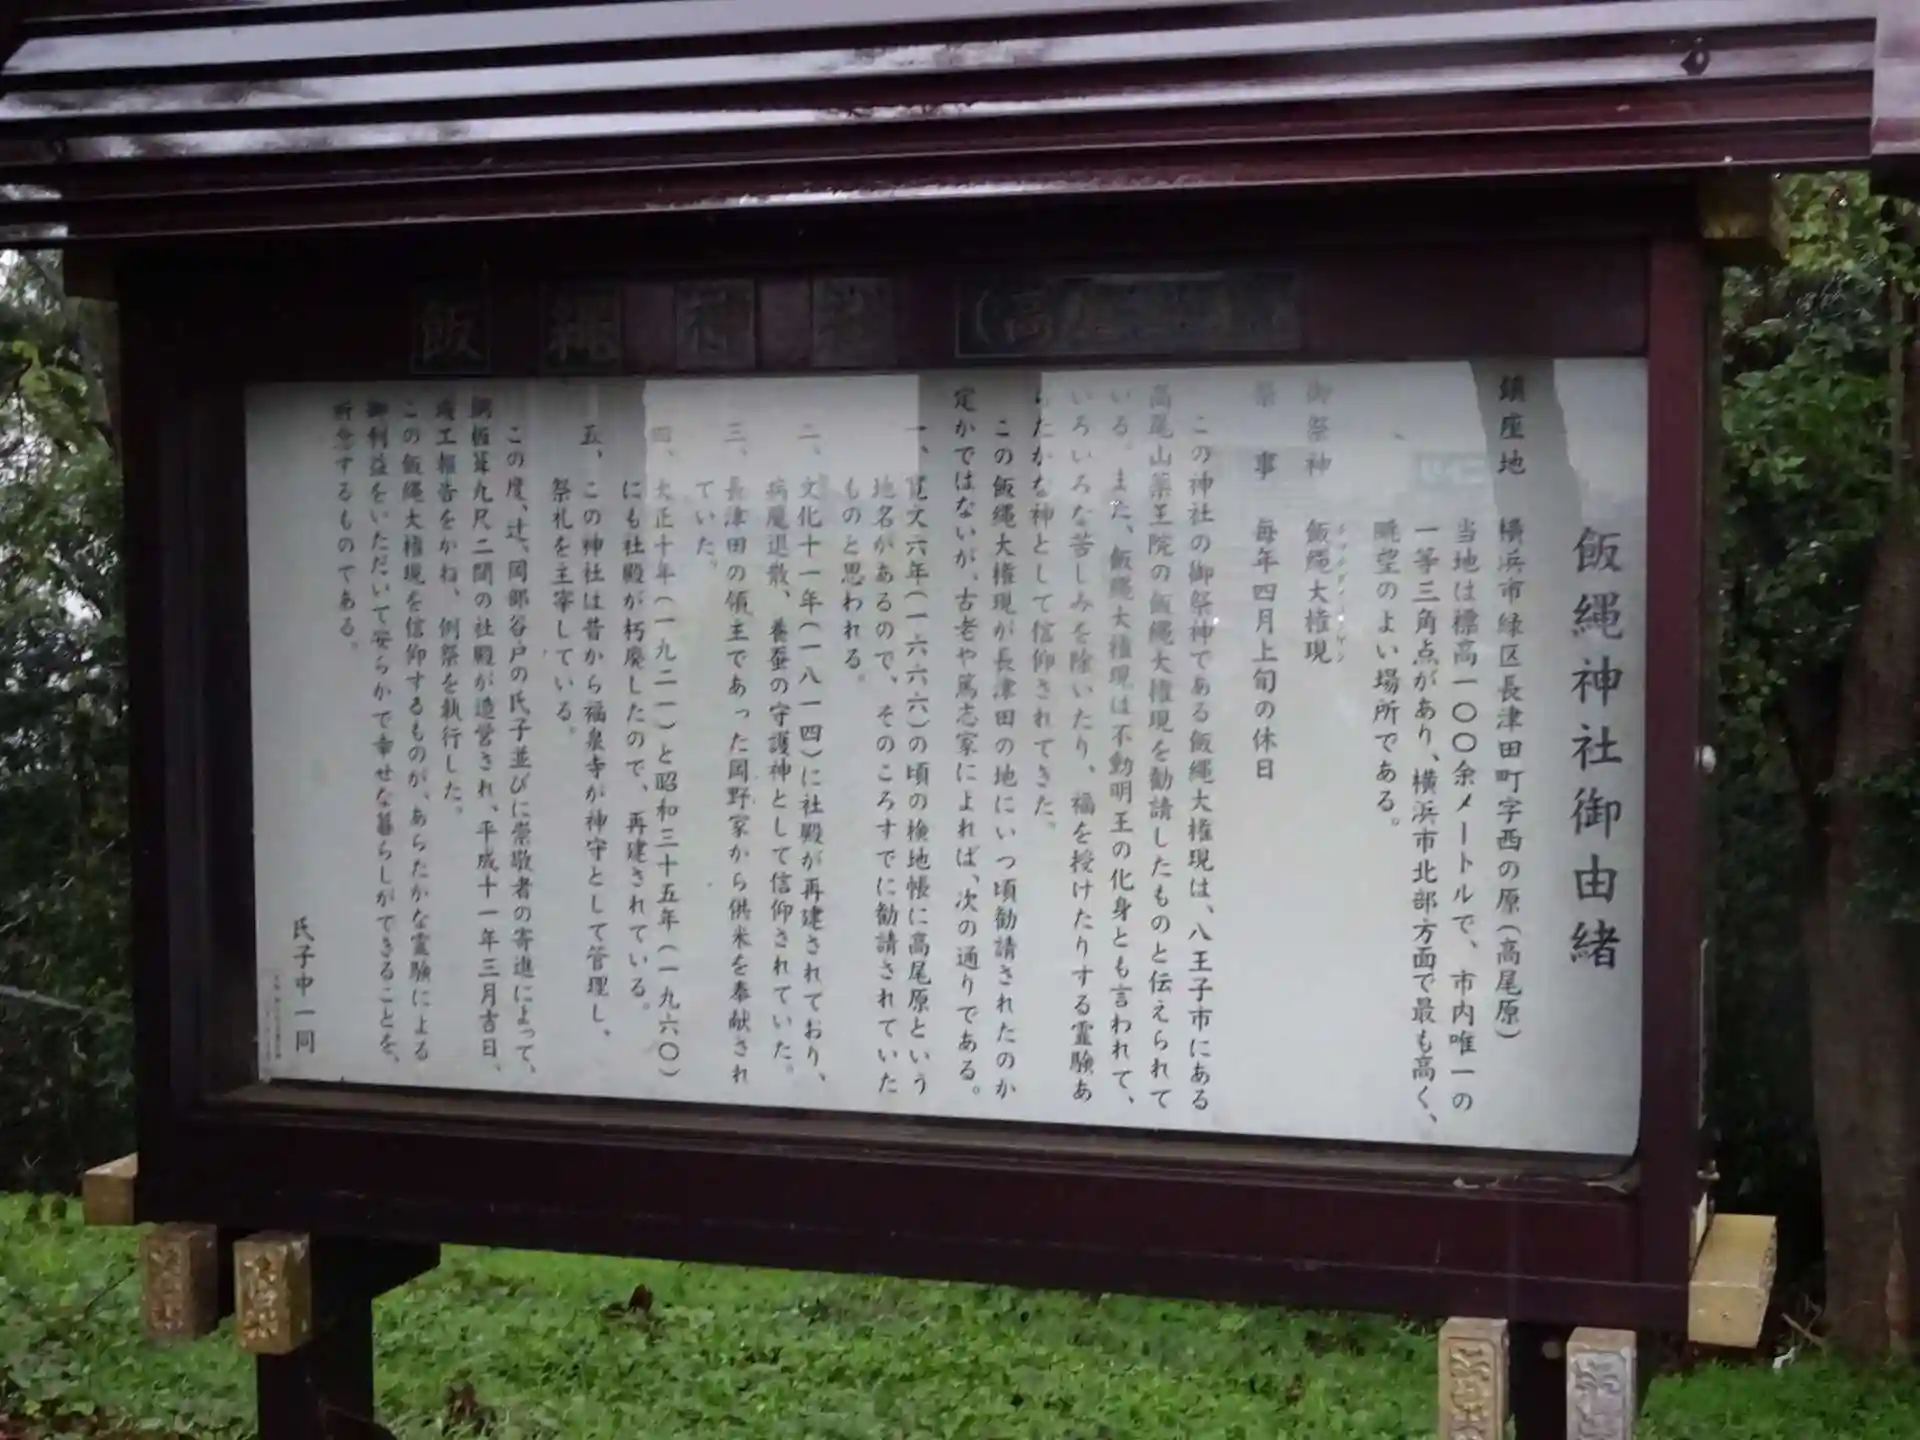 飯縄神社
飯縄神社御由緒
鎮座地 横浜市緑区長津田町字西の原(高尾原)
当地は標高一〇〇余メートルで、市内唯一の
一等三角点があり、横浜市北部方面で最も高く、
眺望のよい場所である。
御祭神 飯縄大権現
祭事 毎年四月上旬の休日
この神社の御祭神である飯縄大権現は、八王子市にある
高尾山薬王院の飯縄大権現を勧請したものと伝えられて
いる。また、飯縄大権現は不動明王の化身とも言われて、
いろいろな苦しみを除いたり、福を授けたりする霊験あ
らたかな神として信仰されてきた。
この飯縄大権現が長津田の地にいつ頃勧請されたのか
定かではないが、古老や篤志家によれば、次の通りである。
一、寛文六年(一六六六)の頃の検地帳に高尾原という
地名があるので、そのころすでに勧請されていた
ものと思われる。
二、文化十一年(一八一四)に社殿が再建されており、
病魔退散、養蚕の守護神として信仰されていた。
三、長津田の領主であった岡野家から供米を奉献され
ていた。
四、大正十年(一九二一)と昭和三十五年(一九六〇)
にも社殿が朽廃したので、再建されている。
五、この神社は昔から福泉寺が神守として管理し、
祭礼を主宰している。
この度、辻、岡部谷戸の氏子並びに崇敬者の寄進によって、
銅板葺九尺二間の社殿が造営され、平成十一年三月吉日、
竣工報告をかね、例祭を執行した。
この飯縄大権現を信仰するものが、あらたかな霊験による
御利益をいただいて安らかで幸せな暮らしができることを、
祈念するものである。
氏子中一同